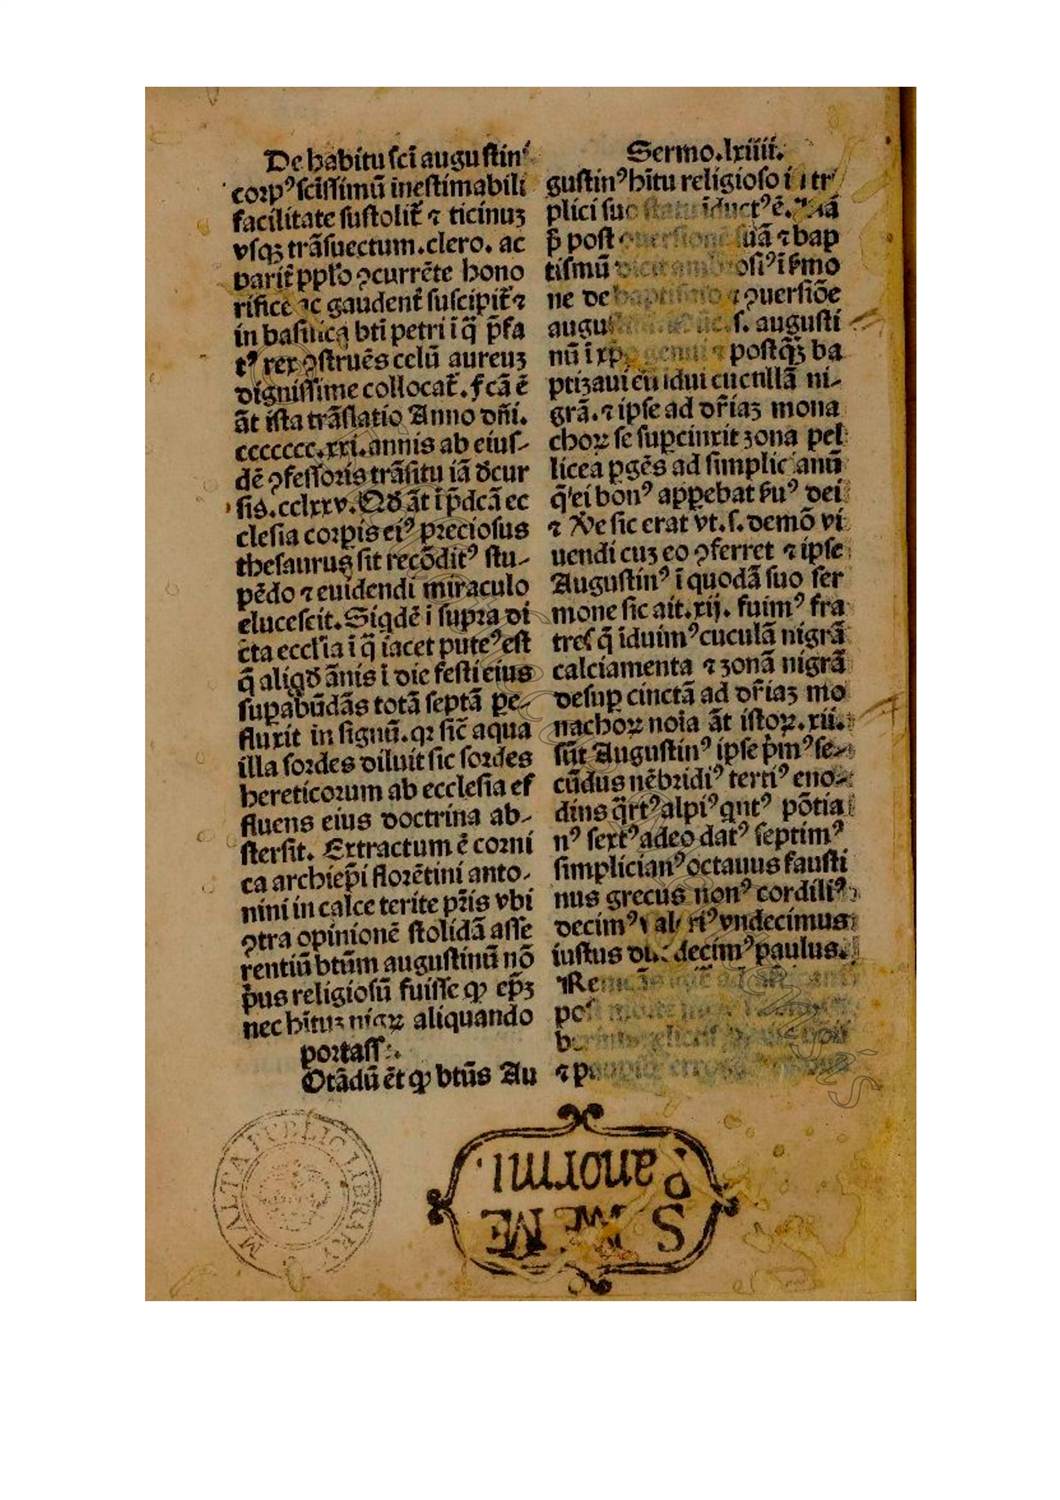 De habitu scī augustinꝰ
corpꝰ scissimū inestimabili
facilitate sustolit̄ ⁊ ticinuꝫ
vsqꝫ trāsuectum. clero. ac
parit̄ ppło ꝯcurrēte hono
rifice ac gaudent̄ suscipit̄ ⁊
in basilica bti petri ī q̄ p̄fa
tꝰ rex ꝯstruēs celū aureuꝫ
dignissime collocat̄. fcā ē
āt ista trāslatio Anno dn̄i.
ccccccc.xxi. annis ab eius-
dē ꝯfessoris trāsitu iā dcur
sis. cclxxv. Qd āt ī p̄dcā ec
clesia corꝑis eiꝰ preciosus
thesaurus sit recōditꝰ stu-
pēdo ⁊ euidendi miraculo
elucescit. Siqdē i supra di
cta eccl'ia ī q̄ iacet puteꝰ est
q̄ aliqd ānis ī die festi eius
supabūdās totā septā ꝑe-
fluxit in signū. qꝛ sic̄ aqua
illa sordes diluit sic sordes
hereticorum ab ecclesia ef
fluens eius doctrina ab-
stersit. Extractum ē corni
ca archiep̄i florētini anto-
nini in calce terite pr̄is vbi
ꝯtra opinionē stolidā asse
rentiū btūm augustinū nō
p̄us religiosū fuisse ꝙ ep̄ꝫ
nec hītuꝫ nigꝝ aliquando
portass
Otādū ēt ꝙ btūs Au
Sermo. lxiiii.
gustinꝰ hītu religioso i tr
plici suo statu īductꝰ ē.
p̄ post ꝯuersionē suā ⁊ bap
tismū dicit ambrosiꝰ ī s̄mo
ne de baptismo ⁊ ꝯuersiōe
augu s. augusti
nū ī xp̄o genui ⁊ postq̄ꝫ ba
ptizaui eū idui cucullā ni-
grā. ⁊ ipse ad dr̄iaꝫ mona
choꝝ se supcinxit zona pel
licea ꝑgēs ad simplicianū
q̄ ei bonꝰ apꝑebat s̄uꝰ dei
⁊ Ve sic erat vt. s. demō vi
uendi cuꝫ eo ꝯferret ⁊ ipse
Augustinꝰ ī quodā suo ser
mone sic ait. xij. fuimꝰ fra
tres q̄ īduimꝰ cuculā nigrā
calciamenta ⁊ zonā nigrā
desuꝑ cinctā ad dr̄iaꝫ mo
nachoꝝ noīa āt istoꝝ. xii.
sūt Augustinꝰ ipse p̄mꝰ se-
cūdus nēbridiꝰ tertiꝰ eno-
dius q̄rtꝰ alpiꝰ qntꝰ pōtia
nꝰ sextꝰ adeodatꝰ septimꝰ
simplicianꝰ octauus fausti
nus grecus nonꝰ cordiliꝰ
decimꝰ valeriꝰ vndecimus
iustus duodecimꝰ paulus.
Re
pos
b
⁊ p
MALTA PUBLIC LIBRARY
S. M. NE
Panormi.